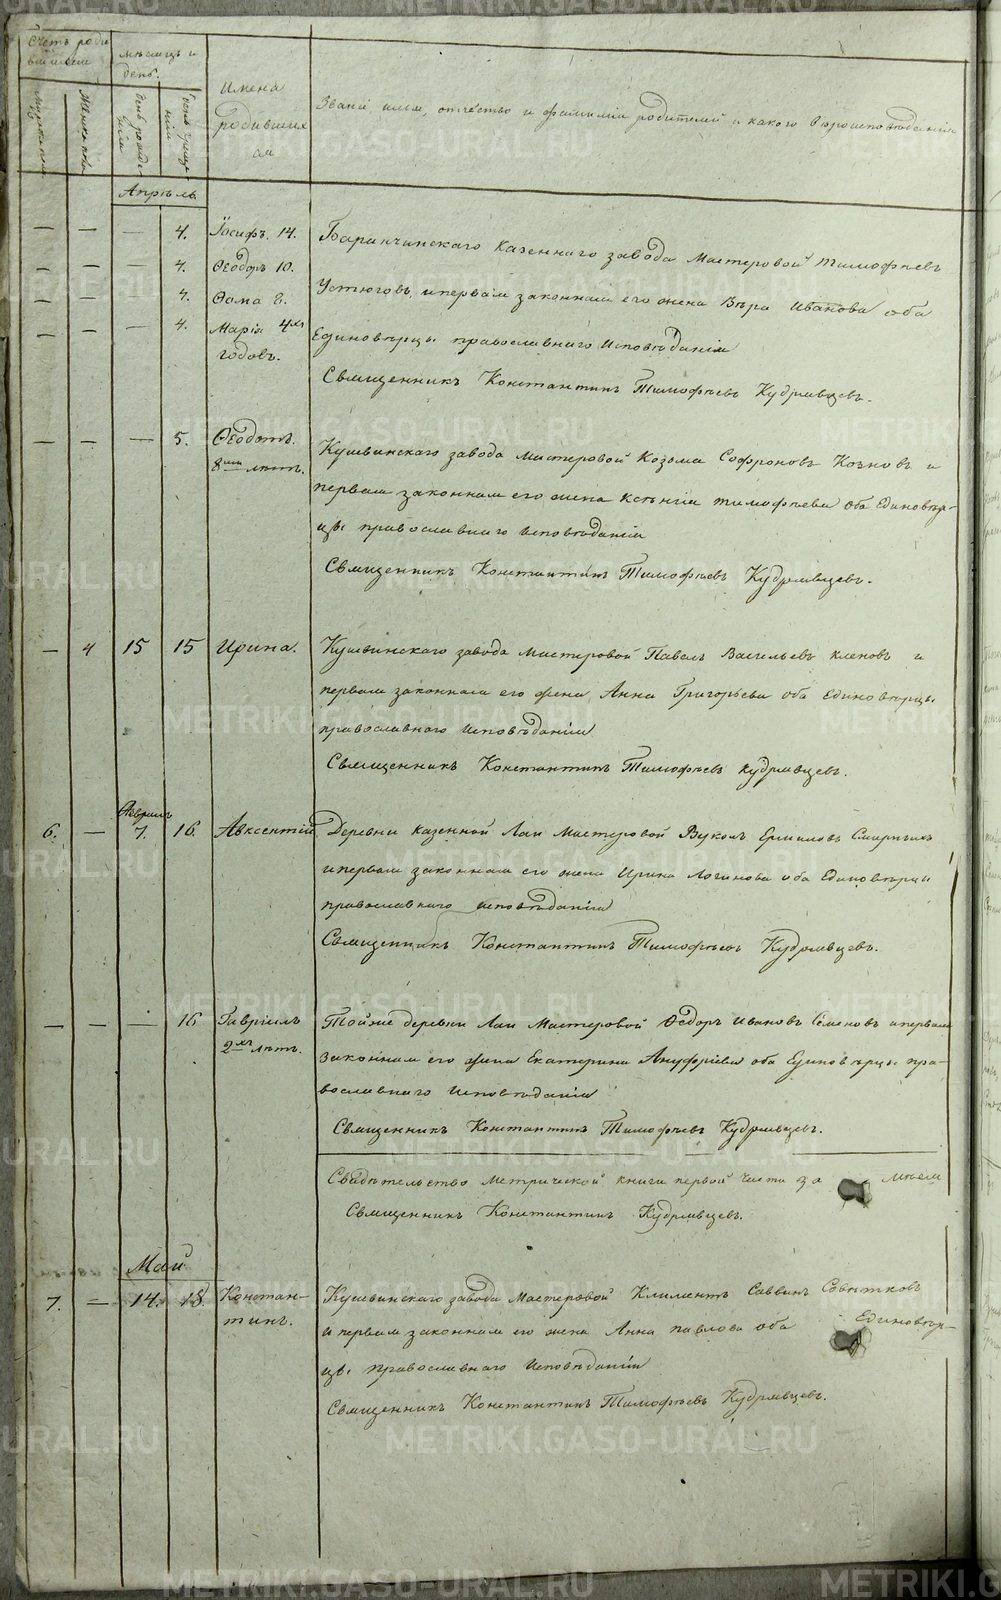 Счетъ роди
вшихся
мѣсяцъ и
день.
Имена
родивших
ся
Званіе имя, отчество и фамилія родителей и какого вѣроисповѣданія
Женска
день рожде
нія
Апрѣль
— — — 4. Іосифъ. 14. Баранчинскаго казеннаго завода Мастеровой Тимофѣевъ
— — — 4. Ѳеодоръ 10.
Устюговъ, и первая законная его жена Вѣра Иванова оба
— — — 4. Ѳома 8.
— — — 4. Марія 4хъ
Единовѣрцы православнаго Исповѣданія
годовъ.
Священникъ Константинъ Тимофѣевъ Кудрявцевъ.
— — — 5. Ѳеодотъ.
Кушвинскаго завода Мастеровой Козьма Софроновъ и
8ми лѣтъ.
первая законная его жена Ксѣнія Тимофѣева оба Единовѣр-
цы православнаго Исповѣданія
Священникъ Константинъ Тимофѣевъ Кудрявцевъ.
— 4 15 15 Ирина. Кушвинскаго завода Мастеровой Павелъ Васильевъ кленовъ и
первая законная его жена Анна Григорьева оба Единовѣрцы
православнаго Исповѣданія
Священникъ Константинъ Тимофѣевъ Кудрявцевъ.
Февраль
6. — 7. 16. Авксентій Деревни казенной Лаи Мастеровой Вуколъ Ермиловъ
и первая законная его жена Ирина Логинова оба Единовѣрцы
православнаго исповѣданія
Священникъ Константинъ Тимофѣевъ Кудрявцевъ.
— — — 16 Гавріилъ Тойже деревни Лаи Мастеровой Ѳедоръ Ивановъ Семеновъ и первая
2хъ лѣтъ.
законная его жена Екатерина Ануфріева оба Единовѣрцы пра-
вославнаго Исповѣданія
Священникъ Константинъ Тимофѣевъ Кудрявцевъ.
Свидѣтельство Метрической книги первой части за
Священникъ Константинъ Кудрявцевъ.
Май
7. — 14. 18. Констан-
тинъ.
Кушвинскаго завода Мастеровой Климентъ Саввинъ
и первая законная его жена Анна павлова оба Единовѣр-
цы православнаго Исповѣданія
Священникъ Константинъ Тимофѣевъ Кудрявцевъ.
METRIKI.GASO-URAL.RU